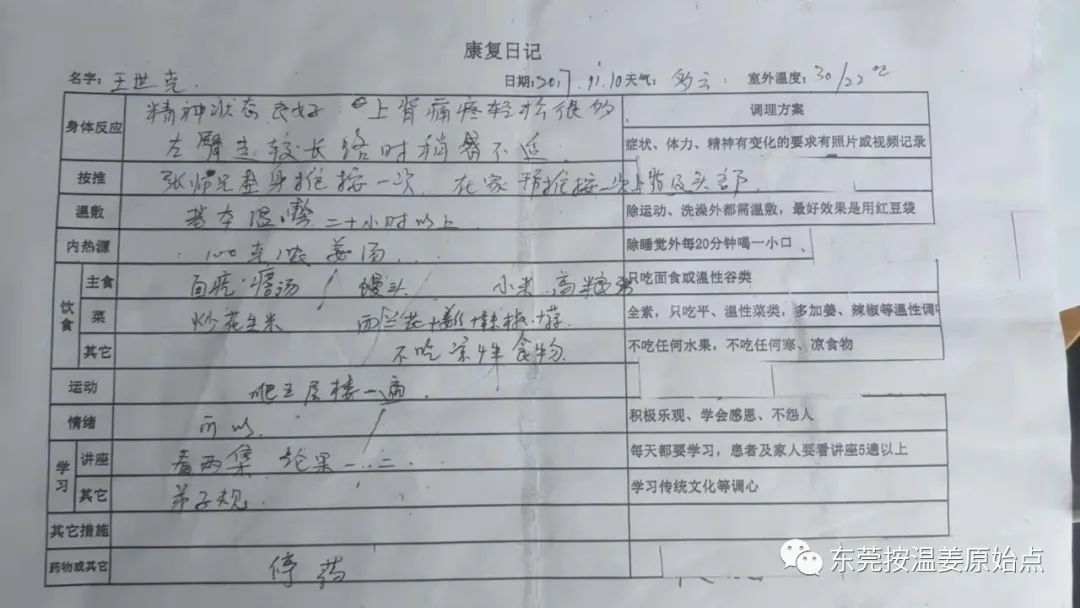 康复日记
名字：王世克 日期：2017.11.10 天气：多云 室外温度：30/22℃
身体反应 精神状态良好 上背痛疼轻松很多 调理方案
左臂走较长路时稍署不适 症状、体力、精神有变化的要求有照片或视频记录
按推 张师兄全身推按一次 在家推按一次上背及头部
温敷 基本温敷二十小时以上 除运动、洗澡外都需温敷，最好效果是用红豆袋
内热源 100克浓姜汤 除睡觉外每20分钟喝一小口
饮食 主食 面疙瘩汤 馒头 小米 高粮粥 只吃面食或温性谷类
菜 炒花生米 西兰花+姜+辣椒 全素，只吃平、温性菜类，多加姜、辣椒等温性调
其它 不吃凉性食物 不吃任何水果，不吃任何寒、凉食物
运动 爬五层楼一遍
情绪 可以 积极乐观、学会感恩、不怨人
学习 讲座 看两集 一..二... 每天都要学习，患者及家人要看讲座5遍以上
其它 弟子规 学习传统文化等调心
其它措施
药物或其它 停药
东莞按温姜原始点